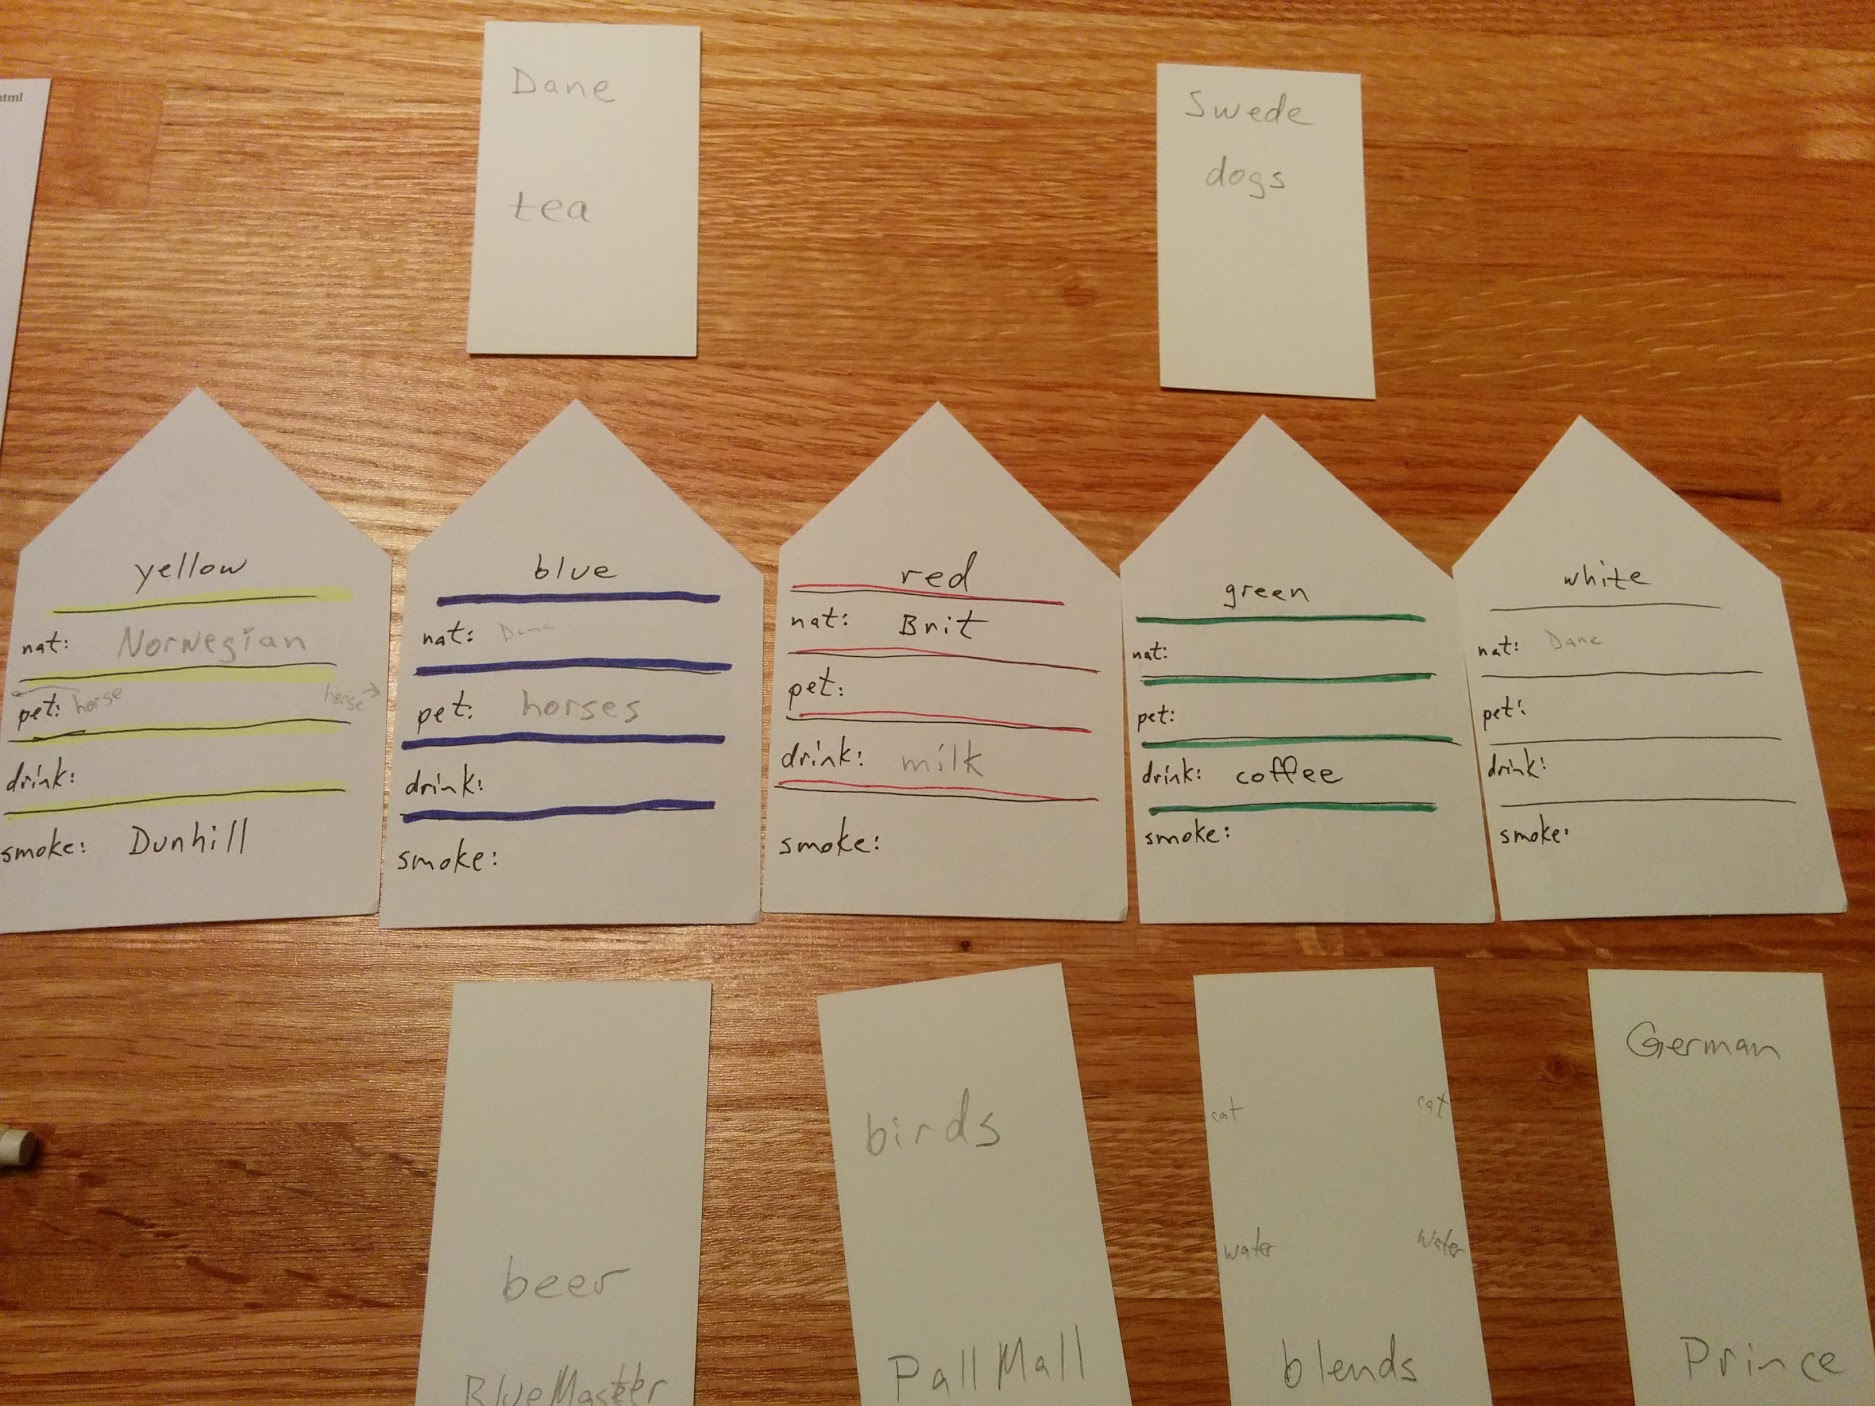 html
Dane
tea
Swede
dogs
yellow
nat: Norwegian
pet: horse horse →
drink:
smoke: Dunhill
blue
nat: Dane
pet: horses
drink:
smoke:
red
nat: Brit
pet:
drink: milk
smoke:
green
nat:
pet:
drink: coffee
smoke:
white
nat: Dane
pet:
drink:
smoke:
beer
BlueMaster
birds
PallMall
cat cat
water water
blends
German
Prince